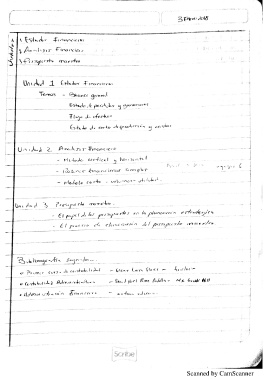 1 Estados Financieros
2 Analisis Financiero
3 Presupuesto maestro
Unidad 1 Estados Financieros
Temas - Balance general
Estado de perdidas y ganancias
Flujo de efectivo
Estado de costo de producción y ventas
Unidad 2 Analisis Financiero
- Metodo Vertical y Horizontal
- Razones Financieras simples
- Modelo costo - volumen utilidad
Unidad 3 Presupuesto maestro
- El papel de los presupuestos en la planeacion estrategica
- El proceso de elaboracion del presupuesto maestro
Bibliografia
Primer curso de contabilidad - Elias Lara Flores - trillas
Contabilidad Administrativa -
Administración Financiera -
Scribe
Scanned by CamScanner